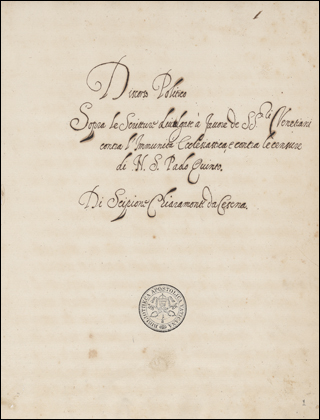 Discorso Politico
Sopra le Scritture divulgate à favore de SS.ri Venetiani
contra l'Immunità Ecclesiastica, e contra le censure
di N. S. Paolo Quinto.
Di Scipion Chiaramonti da Cesena.
BIBLIOTHECA APOSTOLICA VATICANA
1